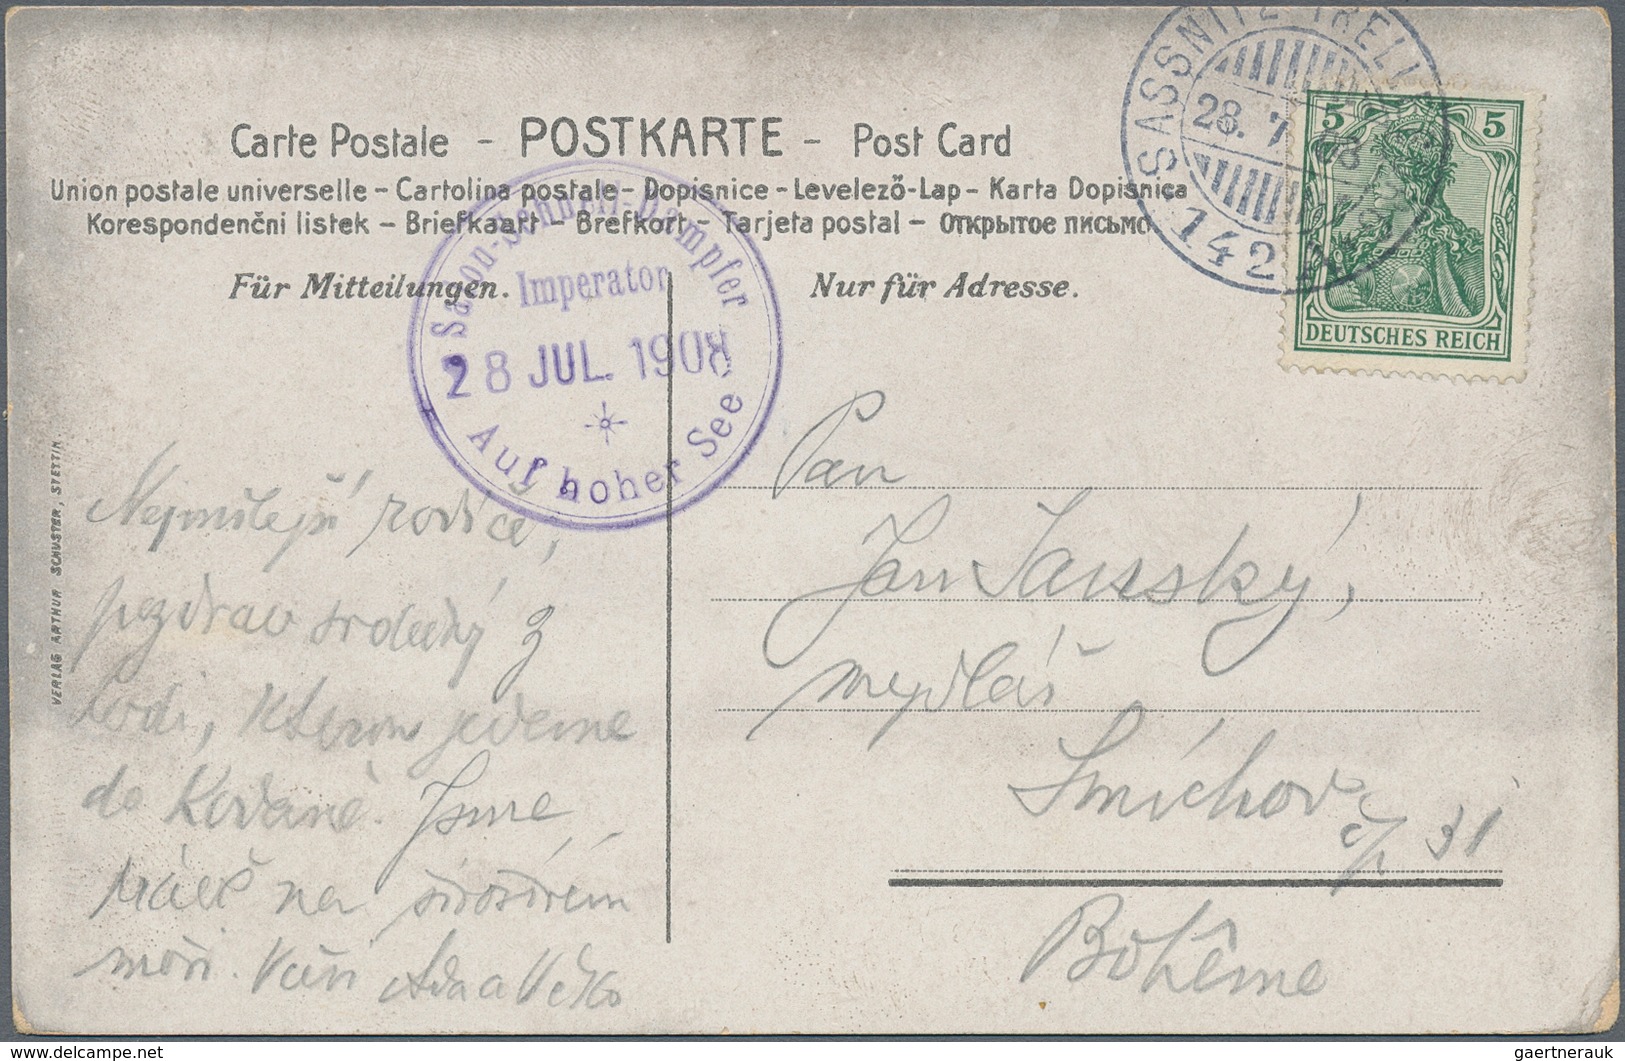 SASSNITZ TRELL
28. 7 08
142 A
5 5
DEUTSCHES REICH
Carte Postale – POSTKARTE – Post Card
Union postale universelle – Cartolina postale – Dopisnice – Levelező-Lap – Karta Dopisnica
Korespondenčni listek – Briefkaart – Brefkort – Tarjeta postal – Открытое письмо
Für Mitteilungen.
Nur für Adresse.
Salon-Schnell-Dampfer
Imperator
28 JUL. 1908
Auf hoher See
VERLAG ARTHUR SCHUSTER, STETTIN.
Nejmilejší rodiče,
pozdrav srdečný z
lodi, kterou jedeme
do Kodaně. Jsme
na
moři. Vaši Ada a
Pan
Jan Janský,
mydlář
Smíchov
čp 31
Bohême
gaertnerauk
delcampe.net